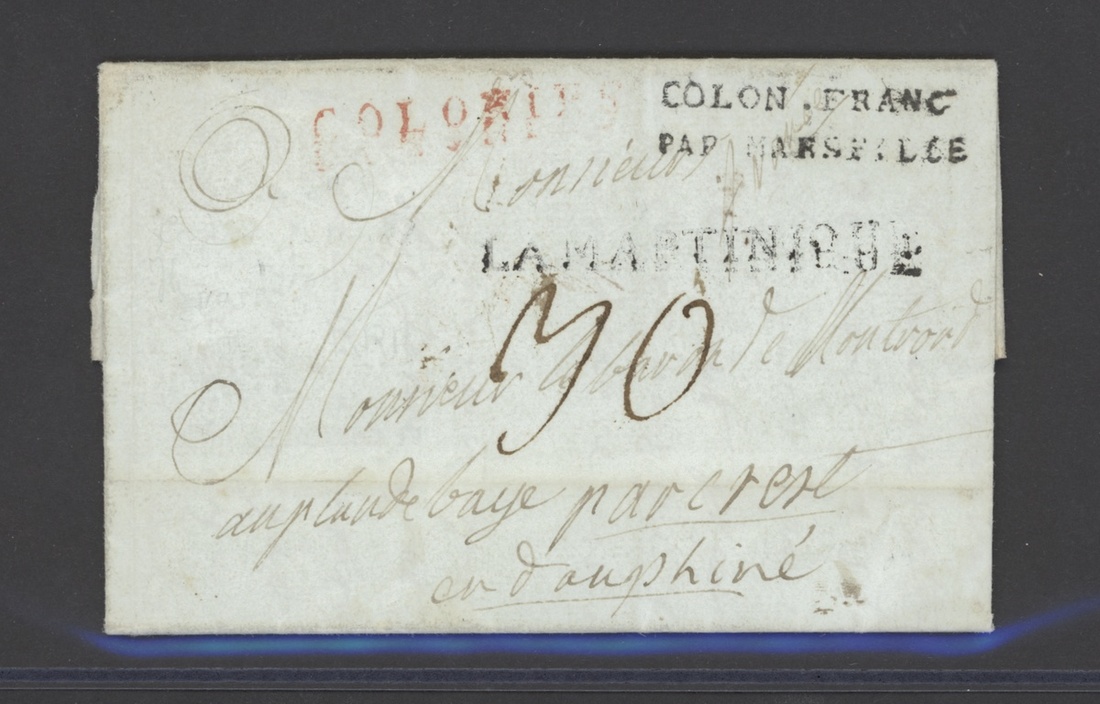 COLONIES
COLON. FRANC
PAR MARSEILLE
A Monsieur
LA MARTINIQUE
30
Monsieur le baron de
au plan de baye par crest
en dauphiné